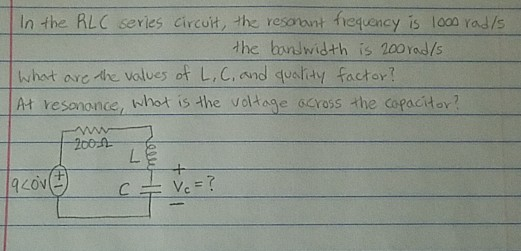 In the RLC series circuit, the resonant frequency is 1000 rad/s
the bandwidth is 200 rad/s
What are the values of L, C, and quality factor?
At resonance, what is the voltage across the capacitor?
200Ω
L
9<0°V
+
−
C
+
Vc = ?
−